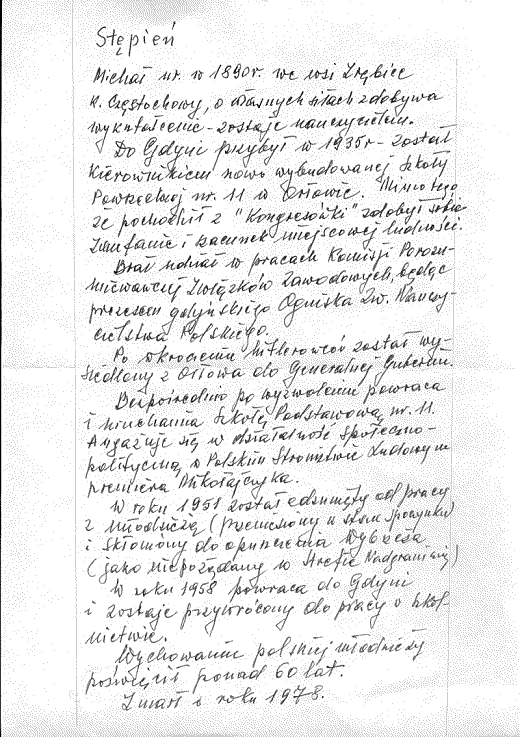 Stępień
Michał ur. w 1890r. we wsi Zrębice
k. Częstochowy, o własnych siłach zdobywa
wykształcenie - zostaje nauczycielem.
Do Gdyni przybył w 1935r - został
Kierownikiem nowo wybudowanej Szkoły
Powszechnej nr. 11 w Orłowie. Mimo tego
że pochodził z "Kongresówki" zdobył sobie
Zaufanie i szacunek miejscowej ludności.
Brał udział w pracach Komisji Porozu-
miewawczej Związków Zawodowych, będąc
prezesem gdyńskiego Ogniska Zw. Nauczy-
cielstwa Polskiego.
Po wkroczeniu hitlerowców został wy-
siedlony z Orłowa do Generalnej Gubernii.
Bezpośrednio po wyzwoleniu powraca
i uruchamia Szkołę Podstawową nr. 11.
Angażuje się w działalność społeczno-
polityczną w Polskim Stronnictwie Ludowym
premiera Mikołajczyka.
W roku 1951 został odsunięty od pracy
z młodzieżą (przeniesiony w stan spoczynku)
i skłoniony do opuszczenia Wybrzeża
(jako niepożądany w Strefie Nadgranicznej)
W roku 1958 powraca do Gdyni
i zostaje przywrócony do pracy w szkol-
nictwie.
Wychowaniu polskiej młodzieży
poświęcił ponad 60 lat.
Zmarł w roku 1978.